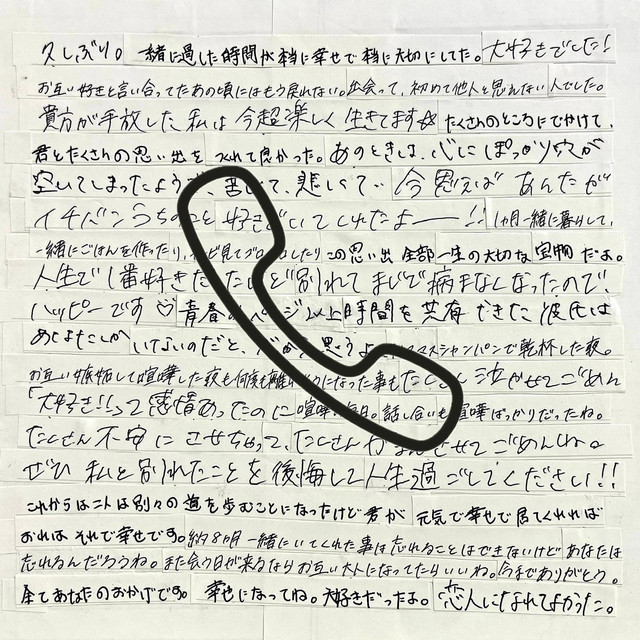 久しぶり。 一緒に過した時間が本当に幸せで本当に大切にしてた。大好きでした!
お互い好きと言い合ってたあの頃にはもう戻れない。出会って、初めて他人と思えない人でした。
貴方が手放した私は今超楽しく生きてます☆ たくさんのところにでかけて、
君とたくさんの思い出をつくれて良かった。あのときは、心にぽっかり穴が
空いてしまったようで、苦しくて、悲しくて… 今思えば あんたが
イチバンうちのこと 好きでいてくれたよー!! 1ヶ月一緒に暮らして、
一緒にごはんを作ったり、 見て したり この思い出 全部一生の大切な宝物だよ。
人生で1番好きだったけど別れてまじで病まなくなったので、
ハッピーです♡ 青春の ページ以上時間を共有できた彼氏は
あなたしか いてないのだと、 思うよ。 マスシャンパンで乾杯した夜。
お互い嫉妬して喧嘩した夜も何度も離れ そうになった事も たくさん 泣かせてごめん
「大好き!!」って感情あったのに喧嘩 毎日。話し合いも喧嘩ばっかりだったね。
たくさん不安にさせちゃって、たくさん かせてごめんね。
ぜひ 私と別れたことを後悔して人生過ごしてください!!
これからは二人は別々の道を歩むことになったけど君が 元気で幸せで居てくれれば
おれは それで幸せです。約8ヶ月一緒にいてくれた事は忘れることはできないけど あなたは
忘れるんだろうね。また会う日が来るならお互い大人になってたらいいね。今までありがとう。
全てあなたのおかげです。 幸せになってね。大好きだったよ。恋人になれてよかった。